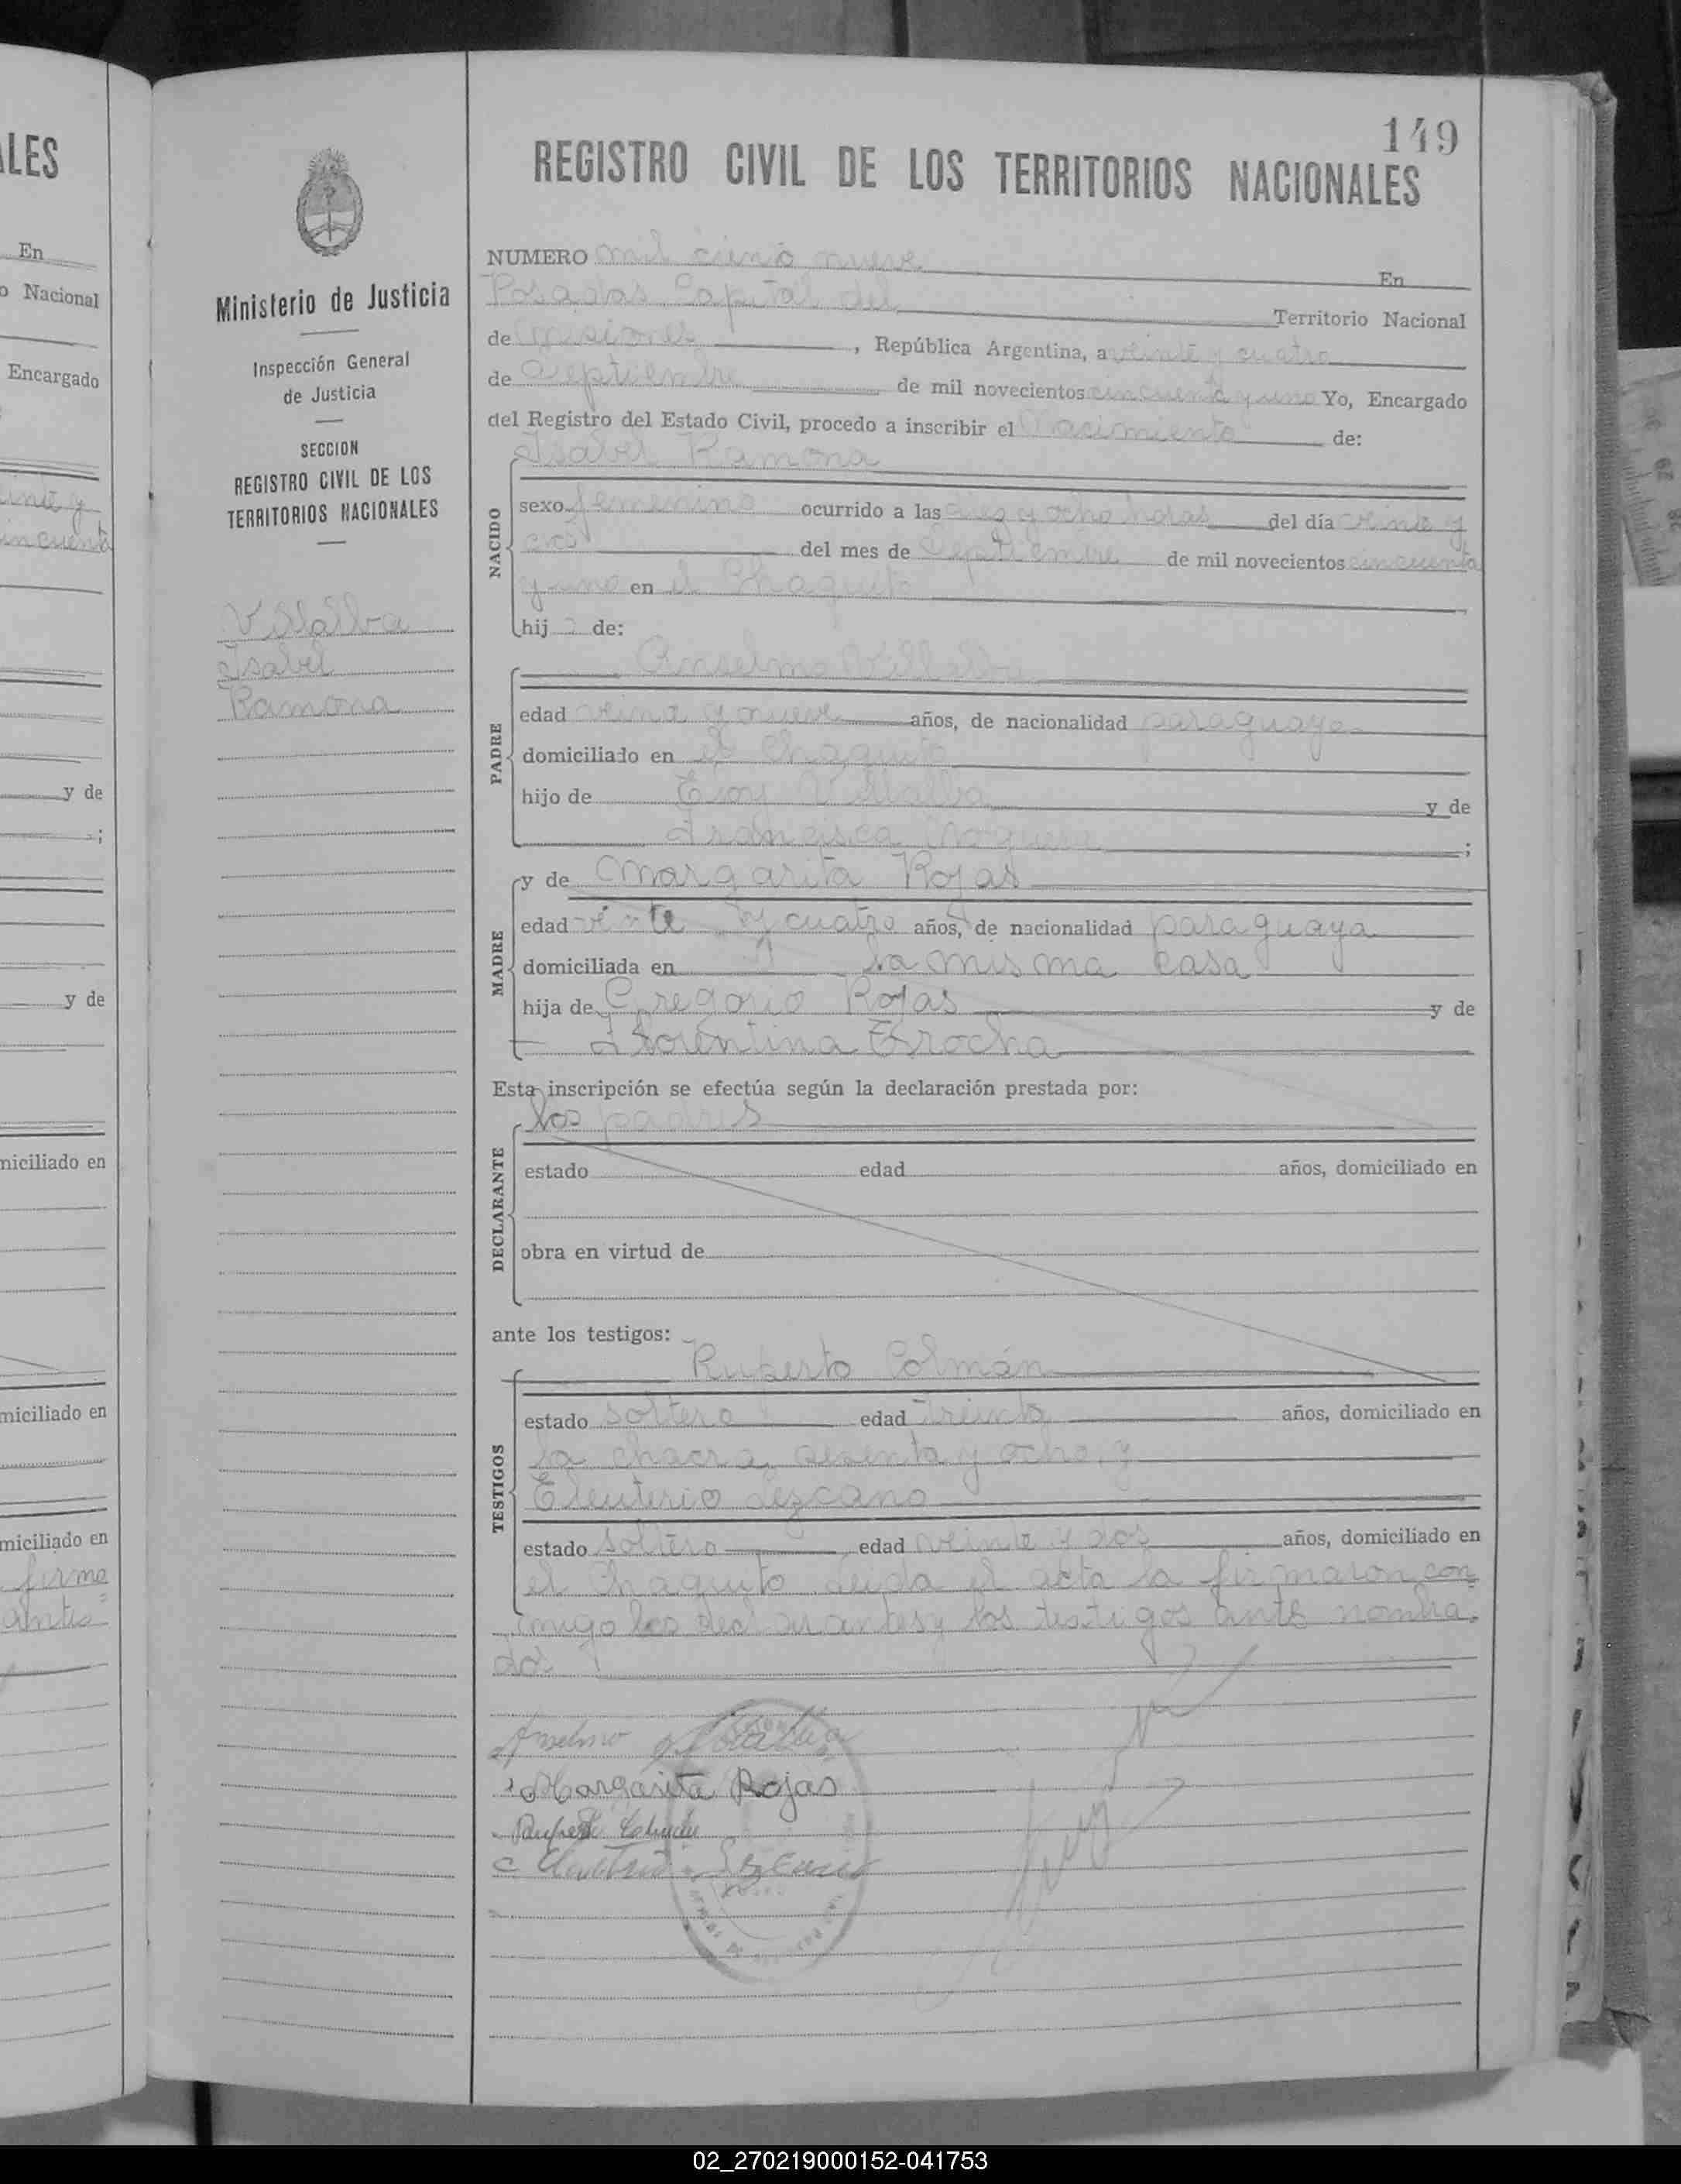 149
REGISTRO CIVIL DE LOS TERRITORIOS NACIONALES
Ministerio de Justicia
Inspección General
de Justicia
SECCION
REGISTRO CIVIL DE LOS
TERRITORIOS NACIONALES
Villalba
Isabel
Ramona
NUMERO mil ciento nueve En
Posadas Capital del Territorio Nacional
de Misiones, República Argentina, a veinte y cuatro
de Septiembre de mil novecientos cincuenta y uno Yo, Encargado
del Registro del Estado Civil, procedo a inscribir el Nacimiento de:
Isabel Ramona
NACIDO
sexo femenino ocurrido a las diez y ocho horas del día veinte y
dos del mes de Septiembre de mil novecientos cincuenta
y uno en el Chaquito
hij a de:
PADRE
Anselmo Villalba
edad veinte y nueve años, de nacionalidad paraguayo
domiciliado en el Chaquito
hijo de Villalba y de
Francisca Noguera;
MADRE
y de Margarita Rojas
edad veinte y cuatro años, de nacionalidad paraguaya
domiciliada en la misma casa
hija de Gregorio Rojas y de
Florentina
Esta inscripción se efectúa según la declaración prestada por:
los padres
DECLARANTE
estado edad años, domiciliado en
obra en virtud de
ante los testigos:
TESTIGOS
Ruperto Colmán
estado soltero edad treinta años, domiciliado en
la chacra sesenta y ocho, y
Eleuterio Lezcano
estado soltero edad veinte y dos años, domiciliado en
el Chaquito leida el acta la firmaron con
migo los declarantes y los testigos ante nombra-
dos
Anselmo Villalba
Margarita Rojas
LES
En
o Nacional
Encargado
inte y
incuenta
y de
;
y de
miciliado en
miciliado en
miciliado en
firmo
ante
02_270219000152-041753